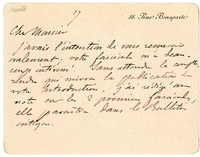 17
18, Rue Bonaparte
Cher Monsieur
J'avais l'intention de vous remercier
oralement, votre fascicule m'a beau-
coup intéressé. Sans attendre le compte
rendu qui suivra la publication de
votre Introduction, j'ai rédigé une
note sur les 2 premiers fascicules,
elle paraîtra dans le Bulletin
critique.